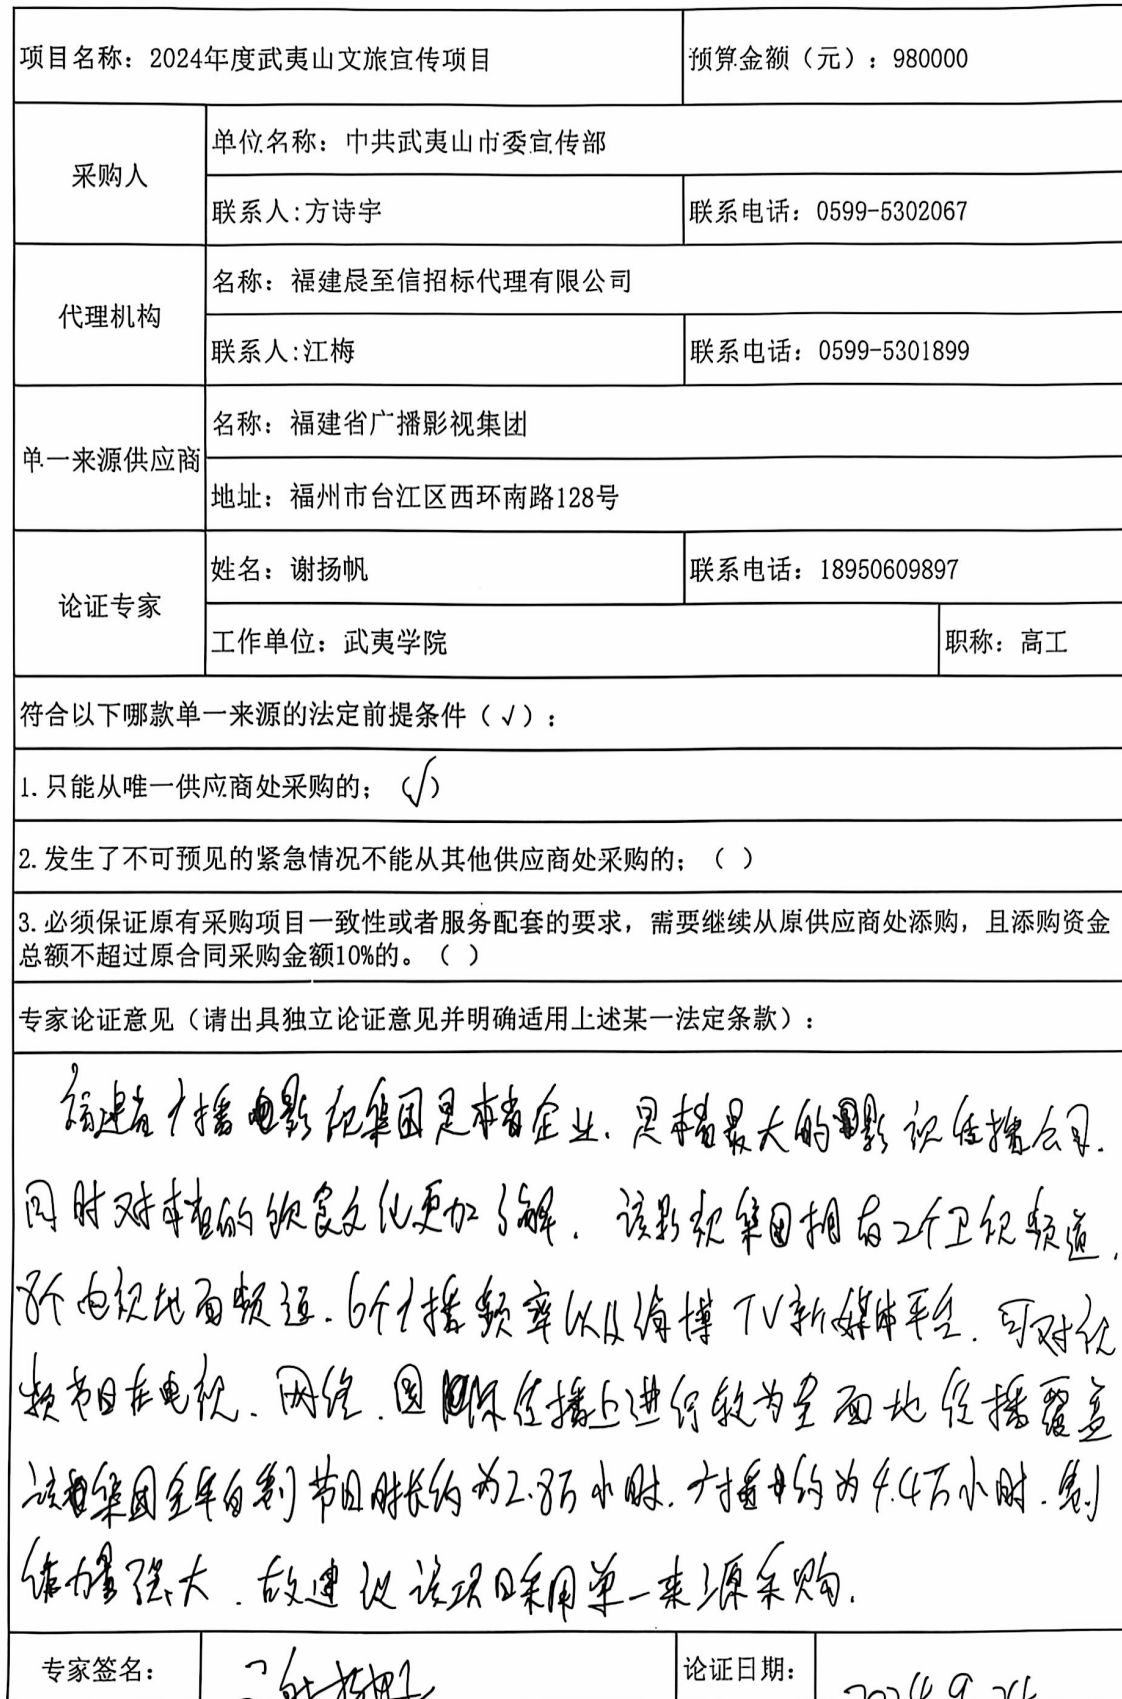 项目名称：2024年度武夷山文旅宣传项目
预算金额（元）：980000
采购人
单位名称：中共武夷山市委宣传部
联系人:方诗宇
联系电话：0599-5302067
代理机构
名称：福建晨至信招标代理有限公司
联系人:江梅
联系电话：0599-5301899
单一来源供应商
名称：福建省广播影视集团
地址：福州市台江区西环南路128号
论证专家
姓名：谢扬帆
联系电话：18950609897
工作单位：武夷学院
职称：高工
符合以下哪款单一来源的法定前提条件（√）：
1.只能从唯一供应商处采购的；（√）
2.发生了不可预见的紧急情况不能从其他供应商处采购的；（ ）
3.必须保证原有采购项目一致性或者服务配套的要求，需要继续从原供应商处添购，且添购资金
总额不超过原合同采购金额10%的。（ ）
专家论证意见（请出具独立论证意见并明确适用上述某一法定条款）：
福建省广播影视集团是本省企业，是本省最大的影视传播公司，
同时对本省的饮食文化更加了解。该影视集团拥有2个卫视频道，
8个电视地面频道，6个广播频率以及海博TV新媒体平台，可对视
频节目在电视、网络、国际传播上进行较为全面地传播覆盖
该集团全年自制节目时长约为2.8万小时，广播约为4.4万小时，制
作力量强大，故建议该项目采用单一来源采购。
专家签名：
谢扬帆
论证日期：
2024.9.24